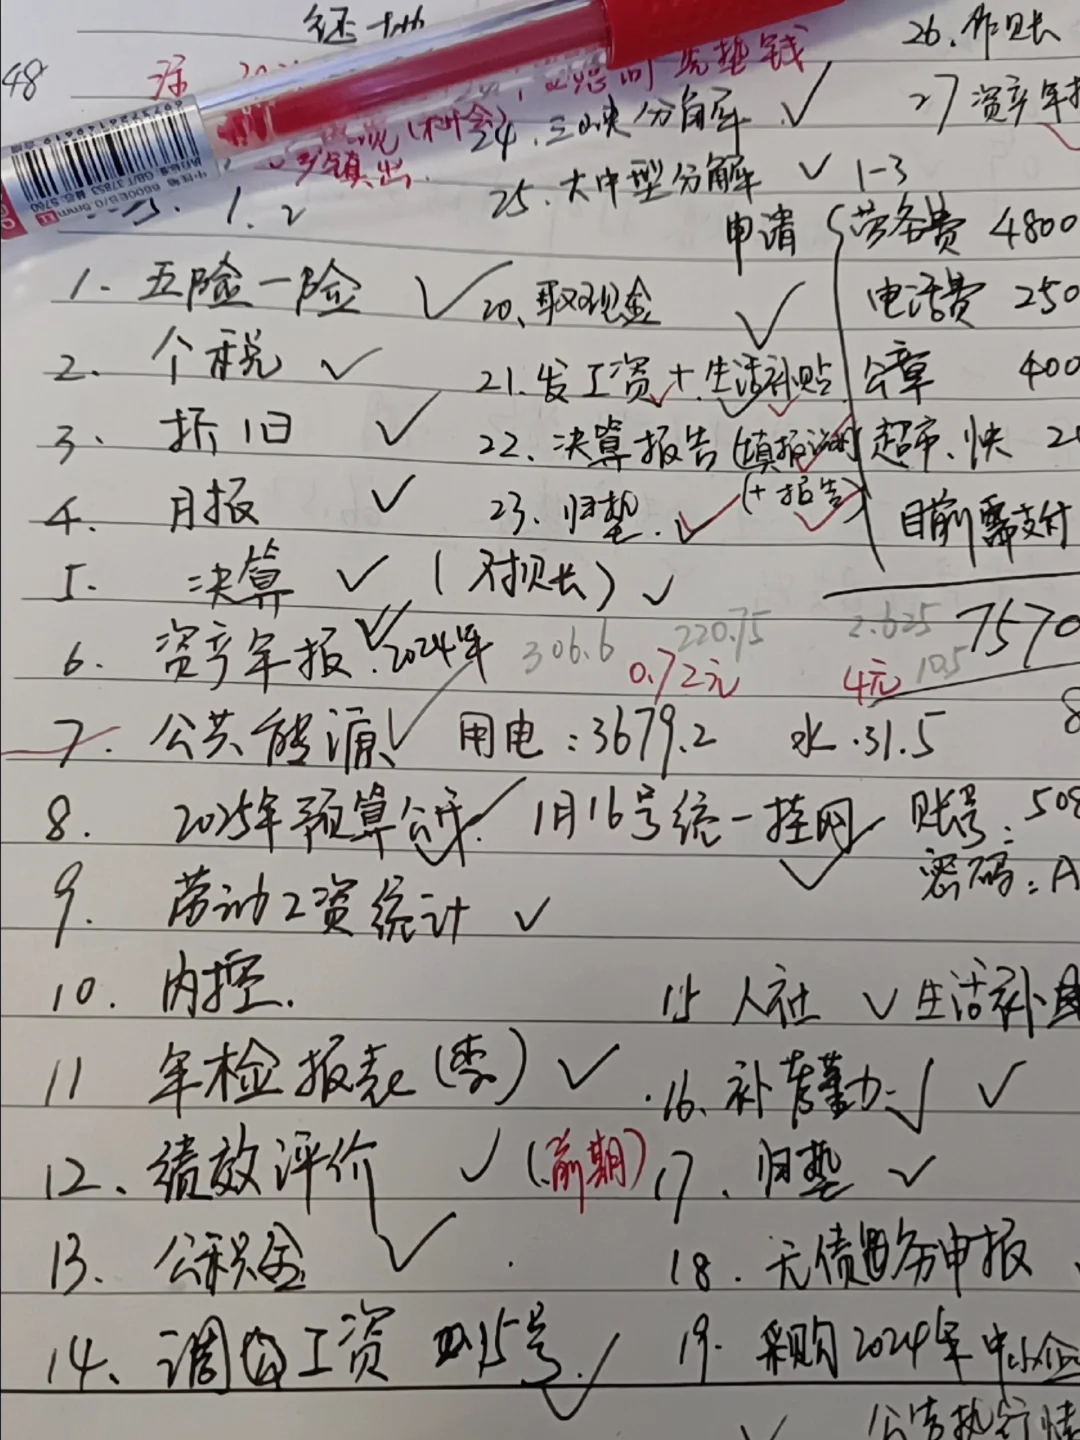 26、作账
48
先垫钱
24.三峡分解 ✓
27 资产年报
镇出
25.大中型分解 ✓ 1-3
1.2
申请 劳务费 4800
1. 五险一险 ✓
20、取现金 ✓
电话费 250
2. 个税 ✓
21.发工资 + 生活补贴
公章 400
3. 折旧 ✓
22.决算报告(填报说明
超市.快
4. 月报 ✓
23.归垫. ✓
(+报告)
目前需支付
5. 决算 ✓ ( ) ✓
7570
6. 资产年报. 2024年
306.6 220.75 2.625
0.72元 4元 10.5
7. 公共能源 ✓ 用电:3679.2 水.31.5
8. 2025年预算公开. 1月16号统一挂网 账号: 508
密码: A
9. 劳动工资统计 ✓
10. 内控.
15 人社 ✓ 生活补
11 年检报表(季) ✓
16、补考勤 ✓
12、绩效评价 ✓ (前期)
17、归垫 ✓
13. 公积金 ✓
18. 无债务申报
14、调 工资 15号. ✓
19. 采购2024年中小企
公告执行情